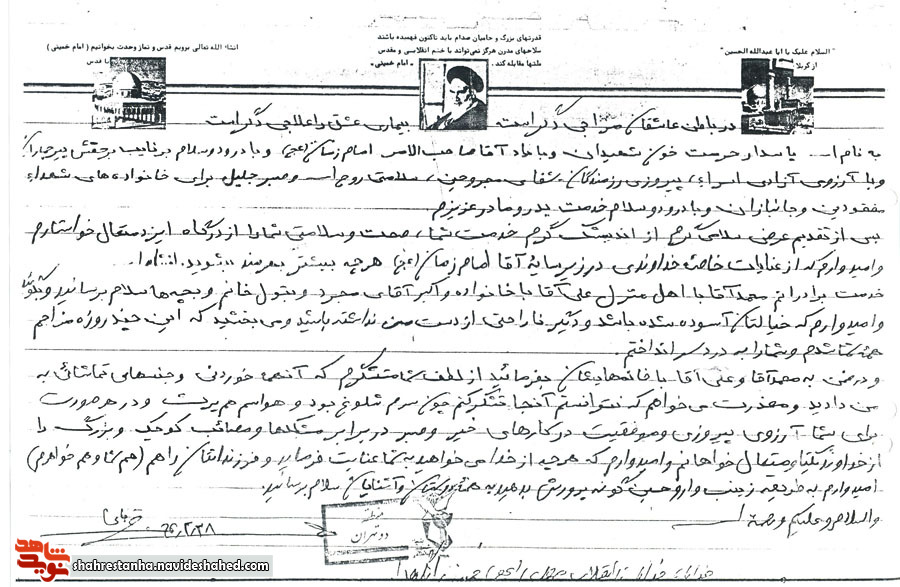 "السلام علیک یا ابا عبدالله الحسین"
از کربلا
قدرتهای بزرگ و حامیان صدام باید تاکنون فهمیده باشند
سلاحهای مدرن هرگز نمی‌تواند با خشم انقلابی و مقدس
ملتها مقابله کند. " امام خمینی "
انشاء الله تعالی برویم قدس و نماز وحدت بخوانیم ( امام خمینی )
تا قدس
در باطن عاشقان مزاجی دگر است بیماری عشق را علاجی دگر است
به نام ا... پاسدار حرمت خون شهیدان و با یاد آقا صاحب الامر امام زمان (عج) و با درود و سلام بر نایب برحقش پیر جماران
و با آرزوی آزادی اسراء، پیروزی رزمندگان، شفای مجروحین، سلامتی روح ا... و صبر جلیل برای خانواده های شهداء
مفقودین و جانبازان و با درود و سلام خدمت پدر و مادر عزیزم.
پس از تقدیم عرض سلامی گرم از اندیمشک گرم خدمت شما، صحت و سلامتی شما را از درگاه ایزد متعال خواستارم
و امیدوارم که از عنایات خاصه خداوندی در زیر سایه آقا امام زمان (عج) هرچه بیشتر بهره‌مند بشوید. انشاءا...
خدمت برادرانم محمدآقا با اهل منزل علی آقا با خانواده و اکبر آقای مجرد و بتول خانم و بچه‌ها سلام برسانید و بگوئید
و امیدوارم که خیالتان آسوده شده باشد و دیگر ناراحتی از دست من نداشته باشید و می بخشید که این چند روزه مزاحم
همه شما شدم و شما را به دردسر انداختم.
و در ضمن به محمدآقا و علی آقا با خانمهایشان بفرمائید از لطف شما متشکرم که آنهمه خوردنی و جنسهای تماشائی به
من دادید و معذرت می خواهم که نتوانستم آنجا تشکر کنم چون سرم شلوغ بود و هواسم هم پرت و در هر صورت
برای شما آرزوی پیروزی و موفقیت در کارهای خیر و صبر در برابر مشکلها و مصائب کوچک و بزرگ را
از خداوند یکتا و متعال خواهانم و امیدوارم که هرچیز از خدا می خواهید به شما عنایت فرماید و فرزندانتان را هم (هم شما و هم خواهرم)
امیدوارم به طریقه زینب وار و حسین گونه پرورش بدهید به همه دوستان و آشنایان سلام برسانید.
والسلام و علیکم و رحمة ا...
۶۵/۲/۲۸
منطقه
تهران
خدایا خدایا تا انقلاب مهدی
شاهد
نوید
shahrestanha.navideshahed.com